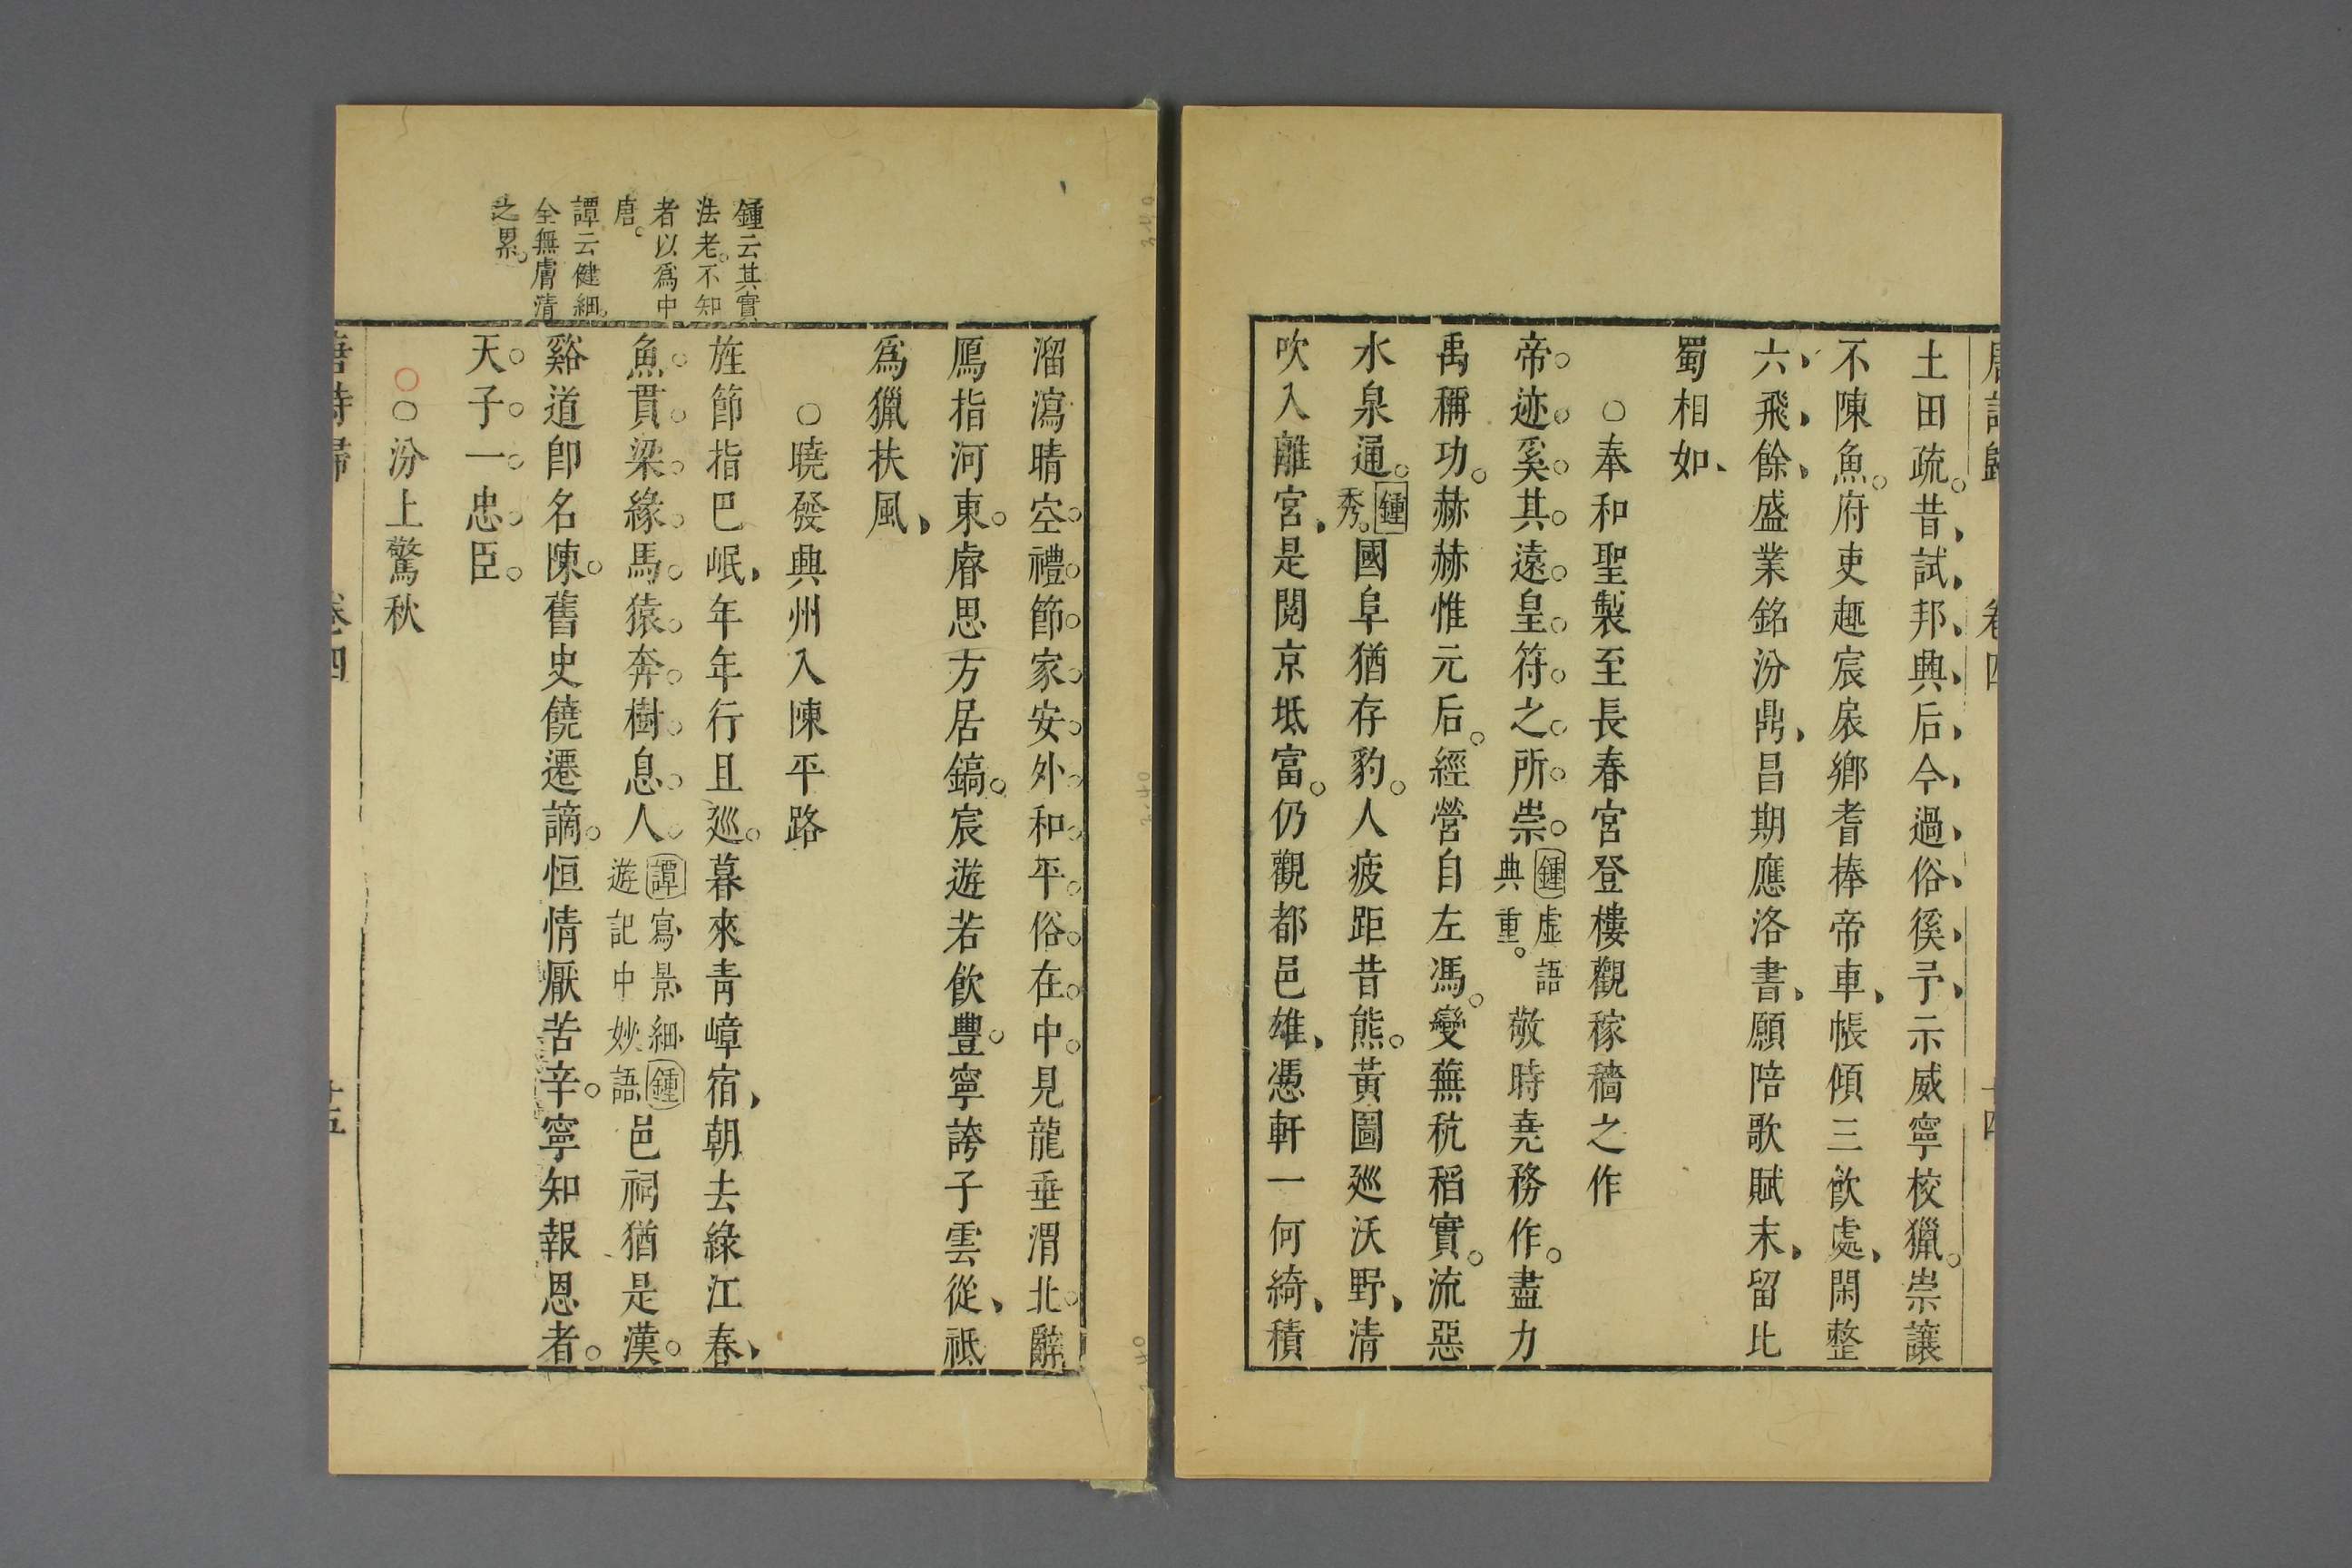 唐詩歸 卷四 十四
土田疏。昔試邦興后、今過俗徯予、示威寧校獵。崇讓
不陳魚。府吏趨宸扆鄉耆捧帝車、帳傾三飲處、閑整
六飛餘、盛業銘汾鼎、昌期應洛書、願陪歌賦末、留比
蜀相如、
○奉和聖製至長春宮登樓觀稼穡之作
帝迹奚其遠皇符之所崇。鍾虛語典重。敬時堯務作。盡力
禹稱功。赫赫惟元后。經營自左馮。變蕪秔稻實。流惡
水泉通。鍾秀。國阜猶存豹。人疲距昔熊。黃圖廵沃野、清
吹入離宮、是閱京坻富。仍觀都邑雄、憑軒一何綺、積
溜瀉晴空。禮節家安外和平俗在中。見龍垂渭北。辭
鴈指河東。睿思方居鎬。宸遊若飲豐。寧誇子雲從、祗
為獵扶風、
○曉發興州入陳平路
旌節指巴岷、年年行且廵。暮來青嶂宿、朝去綠江春、
魚貫梁緣馬猿奔樹息人。譚寫景細鍾遊記中妙語邑祠猶是漢。
谿道卽名陳。舊史饒遷謫。恒情厭苦辛。寧知報恩者。
天子一忠臣。
鍾云其實
法老。不知
者以為中
唐。
譚云健細。
全無膚清
之累。
○○汾上驚秋
唐詩歸 卷四 十五